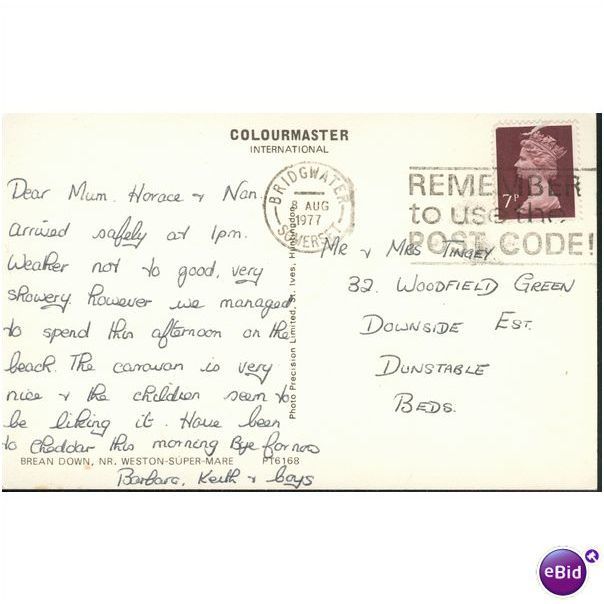 COLOURMASTER
INTERNATIONAL
Dear Mum. Horace & Nan.
arrived safely at 1pm.
Weather not to good, very
showery. however we managed
to spend this afternoon on the
beach. The caravan is very
nice & the children seem to
be liking it. Have been
to Cheddar this morning Bye for now
Barbara, Keith & boys
BREAN DOWN, NR. WESTON-SUPER-MARE PT6168
Photo Precision Limited, St. Ives, Huntingdon
BRIDGWATER
8 AUG
1977
SOMERSET
REMEMBER
to use the
POST CODE!
7P
Mr & Mrs Tingey
32. Woodfield Green
Downside Est.
Dunstable
Beds.
eBid